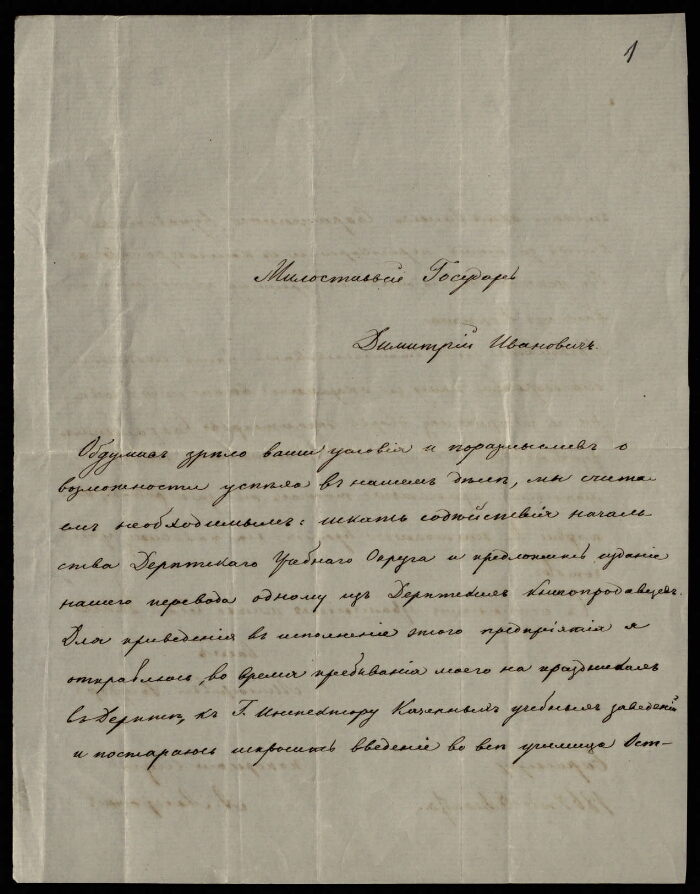 1
Милостивый Государь
Димитрій Ивановичъ.
Обдумавъ зрѣло ваши условія и поразмысливъ о
возможности успѣха въ нашемъ дѣлѣ, мы счита
емъ необходимымъ: искать содѣйствія началь
ства Дерптскаго Учебнаго Округа и предложить изданіе
нашего перевода одному изъ Дерптскихъ книгопродавцевъ.
Для приведенія въ исполненіе этого предпріятія я
отправлюсь во время пребыванія моего на праздникахъ
въ Дерптѣ, къ Г. Инспектору Казенныхъ учебныхъ заведеній
и постараюсь испросить введеніе во всѣ училища Ост-